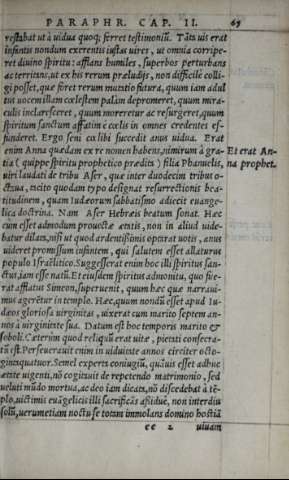 PARAPHR. CAP. II. 65
restabat ut à uidua quoq; ferret testimoniũ. Tãta uis erat
infantis nondum exerentis iustas uires, ut omnia corripe-
ret diuino spiritu: afflans humiles, superbos perturbans
ac territans, ut ex his rerum præludijs, non difficile colli-
gi posset, quæ foret rerum mutatio futura, quum iam adul
tus uocem illam cœlestem palàm depromeret, quum mira-
culis inclaresceret, quum moreretur ac resurgeret, quum
spiritum sanctum afflatim è cœlis in omnes credentes ef-
funderet. Ergo seni cælibi succedit anus uidua. Erat
enim Anna quædam ex re nomen habens, nimirum à gra-
tia (quippe spiritu prophetico prædita) filia Phanuelis,
uiri laudati de tribu Aser, quæ inter duodecim tribus o-
ctaua, tacito quodam typo designat resurrectionis bea-
titudinem, quam Iudæorum sabbatismo adiecit euange-
lica doctrina. Nam Aser Hebræis beatum sonat. Hæc
cùm esset admodum prouectæ ætatis, non in aliud uide-
batur dilata, nisi ut quod ardentissimis optarat uotis, anus
uideret promissum infantem, qui salutem esset allaturus
populo Israëlitico. Suggesserat enim hoc illi spiritus san-
ctus, iam esse natũ. Et eiusdem spiritus admonitu, quo fue-
rat afflatus Simeon, superuenit, quum hæc quæ narraui-
mus agerẽtur in templo. Hæc, quum nondũ esset apud Iu-
dæos gloriosa uirginitas, uixerat cum marito septem an-
nos à uirginitate sua. Datum est hoc temporis marito &
soboli. Cæterùm quod reliquũ erat uitæ, pietati consecra-
tũ est. Perseuerauit enim in uiduitate annos circiter octo-
gintaquatuor. Semel experta coniugiũ, quãuis esset adhuc
ætate uigenti, nõ cogitauit de repetendo matrimonio, sed
ueluti mũdo mortua, ac deo iam dicata, nõ discedebat à tẽ-
plo, uictimis euãgelicis illi sacrificãs assiduè, non interdiu
solũ, uerumetiam noctu se totam immolans domino hostiã
ee 2 uiuam
Et erat An-
na prophet.